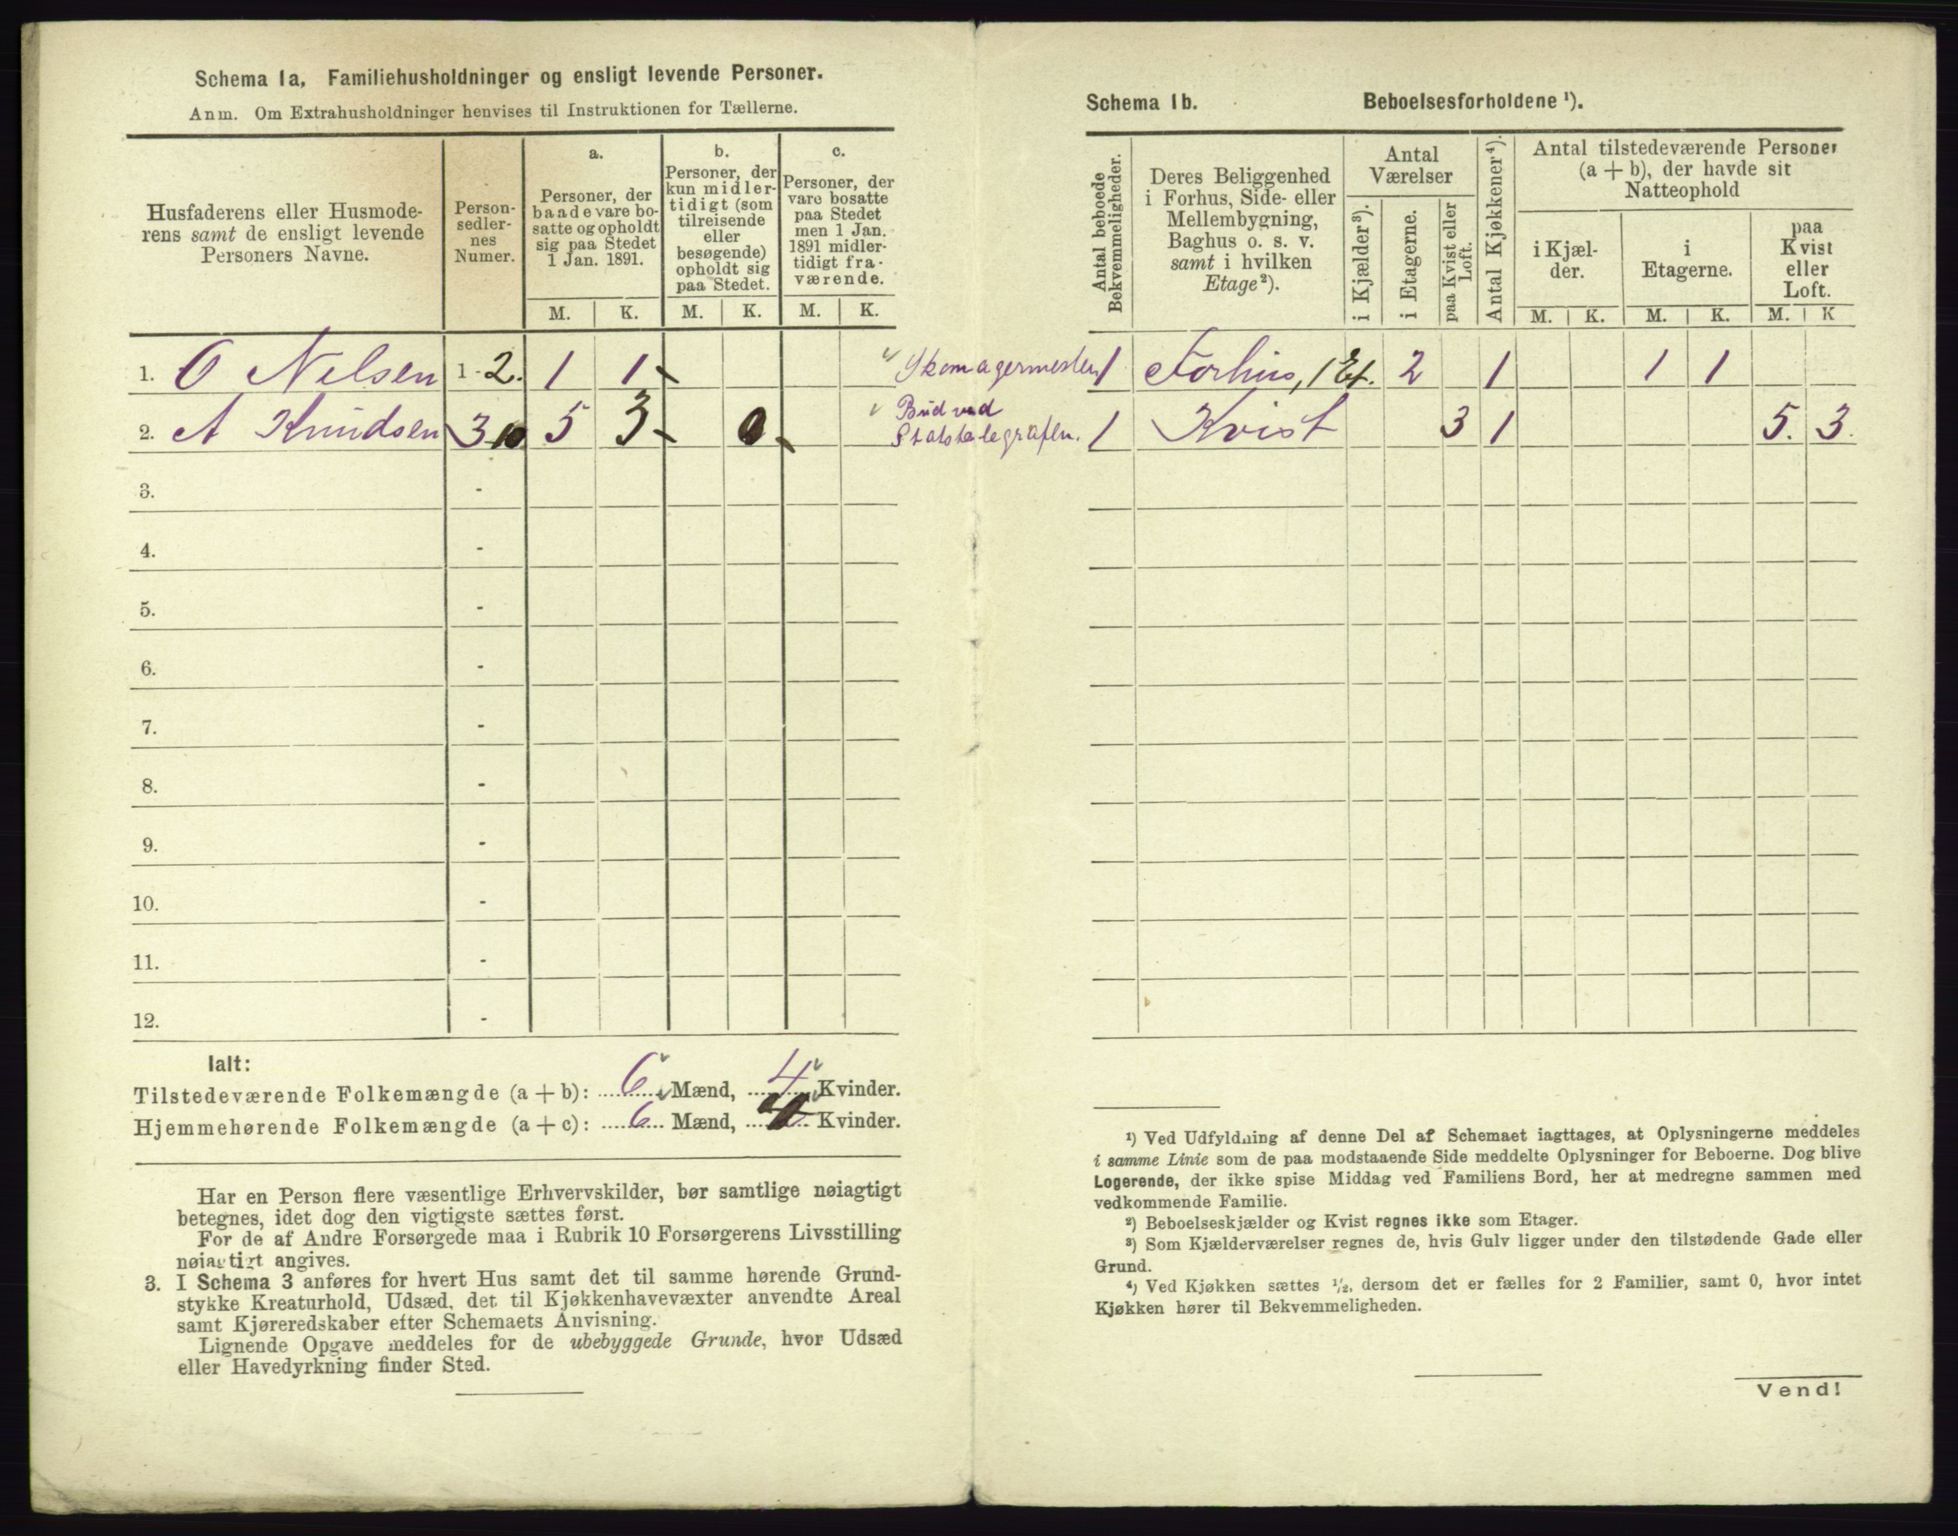 Schema 1a, Familiehusholdninger og ensligt levende Personer.
Anm. Om Extrahusholdninger henvises til Instruktionen for Tællerne.
Husfaderens eller Husmode-
rens samt de ensligt levende
Personers Navne.
Person-
sedler-
nes
Numer.
a.
Personer, der
baade vare bo-
satte og opholdt
sig paa Stedet
1 Jan. 1891.
b.
Personer, der
kun midler-
tidigt (som
tilreisende
eller
besøgende)
opholdt sig
paa Stedet.
c.
Personer, der
vare bosatte
paa Stedet
men 1 Jan.
1891 midler-
tidigt fra-
værende.
M. K. M. K. M. K.
1. O Nilsen 1-2. 1 1 Skomagermester
2. A Knudsen 3-10 5 3 0 Bud ved
Statstelegrafen.
3. -
4. -
5. -
6. -
7. -
8. -
9. -
10. -
11. -
12. -
Ialt:
Tilstedeværende Folkemængde (a + b): 6 Mænd, 4 Kvinder.
Hjemmehørende Folkemængde (a + c): 6 Mænd, 4 Kvinder.
Har en Person flere væsentlige Erhvervskilder, bør samtlige nøiagtigt
betegnes, idet dog den vigtigste sættes først.
For de af Andre Forsørgede maa i Rubrik 10 Forsørgerens Livsstilling
nøiagtigt angives.
3. I Schema 3 anføres for hvert Hus samt det til samme hørende Grund-
stykke Kreaturhold, Udsæd, det til Kjøkkenhavevæxter anvendte Areal
samt Kjøreredskaber efter Schemaets Anvisning.
Lignende Opgave meddeles for de ubebyggede Grunde, hvor Udsæd
eller Havedyrkning finder Sted.
Schema 1b. Beboelsesforholdene ¹).
Antal beboede
Bekvemmeligheder.
Deres Beliggenhed
i Forhus, Side- eller
Mellembygning,
Baghus o. s. v.
samt i hvilken
Etage ²).
Antal
Værelser
i Kjælder ³).
i Etagerne.
paa Kvist eller
Loft.
Antal Kjøkkener ⁴).
Antal tilstedeværende Personer
(a + b), der havde sit
Natteophold
i Kjæl-
der.
i
Etagerne.
paa
Kvist
eller
Loft.
M. K. M. K. M. K
1 Forhus, 1 Et. 2 1 1 1
1 Kvist 3 1 5. 3.
¹) Ved Udfyldning af denne Del af Schemaet iagttages, at Oplysningerne meddeles
i samme Linie som de paa modstaaende Side meddelte Oplysninger for Beboerne. Dog blive
Logerende, der ikke spise Middag ved Familiens Bord, her at medregne sammen med
vedkommende Familie.
²) Beboelseskjælder og Kvist regnes ikke som Etager.
³) Som Kjælderværelser regnes de, hvis Gulv ligger under den tilstødende Gade eller
Grund.
⁴) Ved Kjøkken sættes ½, dersom det er fælles for 2 Familier, samt 0, hvor intet
Kjøkken hører til Bekvemmeligheden.
Vend!